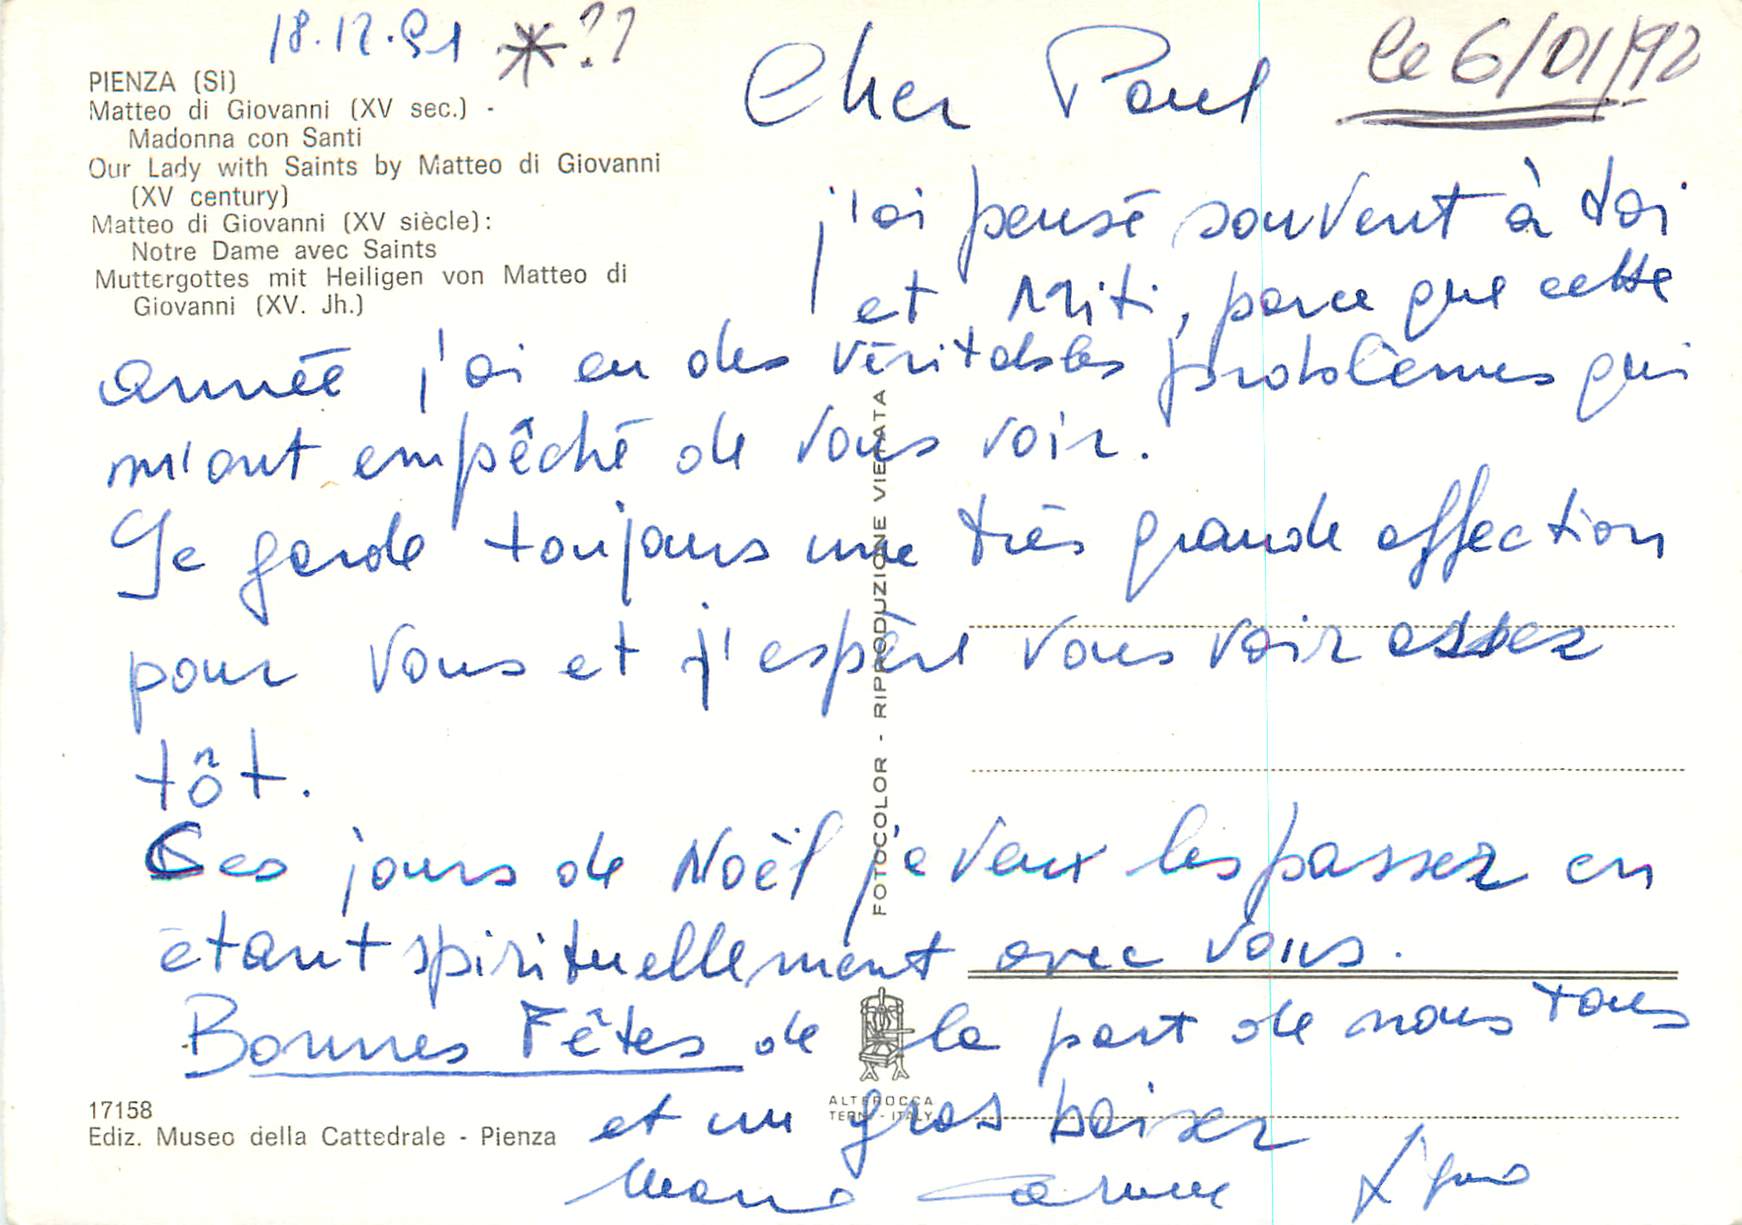 18.12.91 *??
le 6/01/92
PIENZA (Si)
Matteo di Giovanni (XV sec.) -
Madonna con Santi
Our Lady with Saints by Matteo di Giovanni
(XV century)
Matteo di Giovanni (XV siècle):
Notre Dame avec Saints
Muttergottes mit Heiligen von Matteo di
Giovanni (XV. Jh.)
Cher Paul
j'ai pensé souvent à toi
et Miti, parce que cette
année j'ai eu des véritables problèmes qui
m'ont empêché de vous voir.
Je garde toujours une très grande affection
pour vous et j'espère vous voir assez
tôt.
Ces jours de Noël je veux les passer en
étant spirituellement avec vous.
Bonnes Fêtes de la part de nous tous
et un gros baiser
Maria Carme
FOTOCOLOR - RIPRODUZIONE VIETATA
ALTEROCCA
TERNI - ITALY
17158
Ediz. Museo della Cattedrale - Pienza